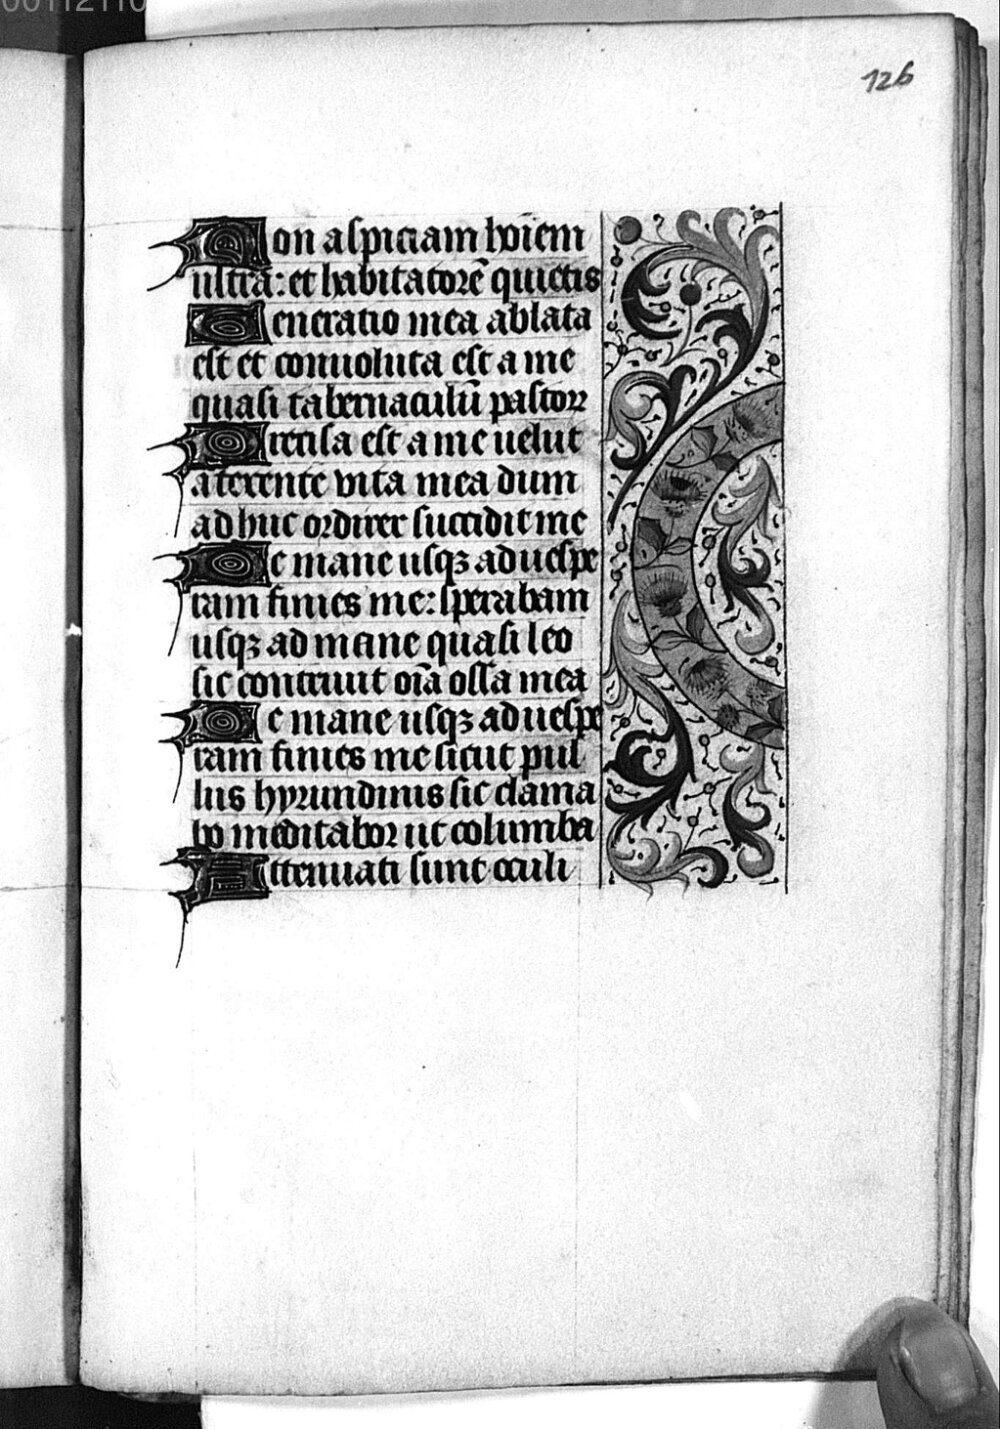 00112110
126
Non aspiciam hoīem
ultra: et habitatorē quietis
Generatio mea ablata
est et conuoluta est a me
quasi tabernaculū pastorꝝ
Precisa est a me uelut
a texente vita mea dum
ad huc ordirer succidit me
De mane usqꝫ ad uespe
ram finies me: sperabam
usqꝫ ad mane quasi leo
sic contriuit oīa ossa mea
De mane usqꝫ ad uespe
ram finies me sicut pul
lus hyrundinis sic clama
bo meditabor ut columba
Attenuati sunt oculi